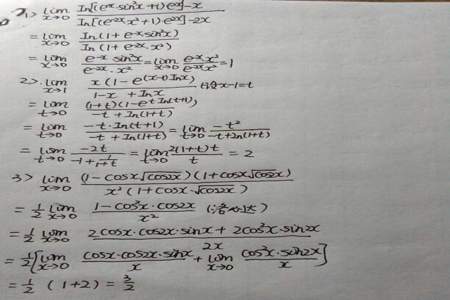 1> lim x→0 In[(e^-x sin²x+1)e^x]-x / In[(e^-2x x²+1)e^2x]-2x
= lim x→0 In(1+e^-x sin²x) / In(1+e^-2x·x²)
= lim x→0 e^-x sin²x / e^-2x·x² = lim x→0 e^-x x² / e^-2x x² = 1
2> lim x→1 x(1-e^(x-1)lnx) / 1-x+lnx 令x-1=t
= lim t→0 (1+t)(1-e^t ln(t+1)) / -t+ln(1+t)
= lim t→0 -t·In(t+1) / -t+In(1+t) = lim t→0 -t² / -t+In(1+t)
= lim t→0 -2t / -1+1/1+t = lim t→0 2(1+t)t / t = 2
3> lim x→0 (1-cosx√cos2x)(1+cosx√cos2x) / x²(1+cosx·√cos2x)
= 1/2 lim x→0 1-cos²x·cos2x / x² (洛必达)
= 1/2 lim x→0 2cosx·cos2x·sinx+2cos²x·sin2x / 2x
= 1/2 [lim x→0 cosx·cos2x·sinx / x + lim x→0 cos²x·sin2x / x]
= 1/2 (1+2) = 3/2